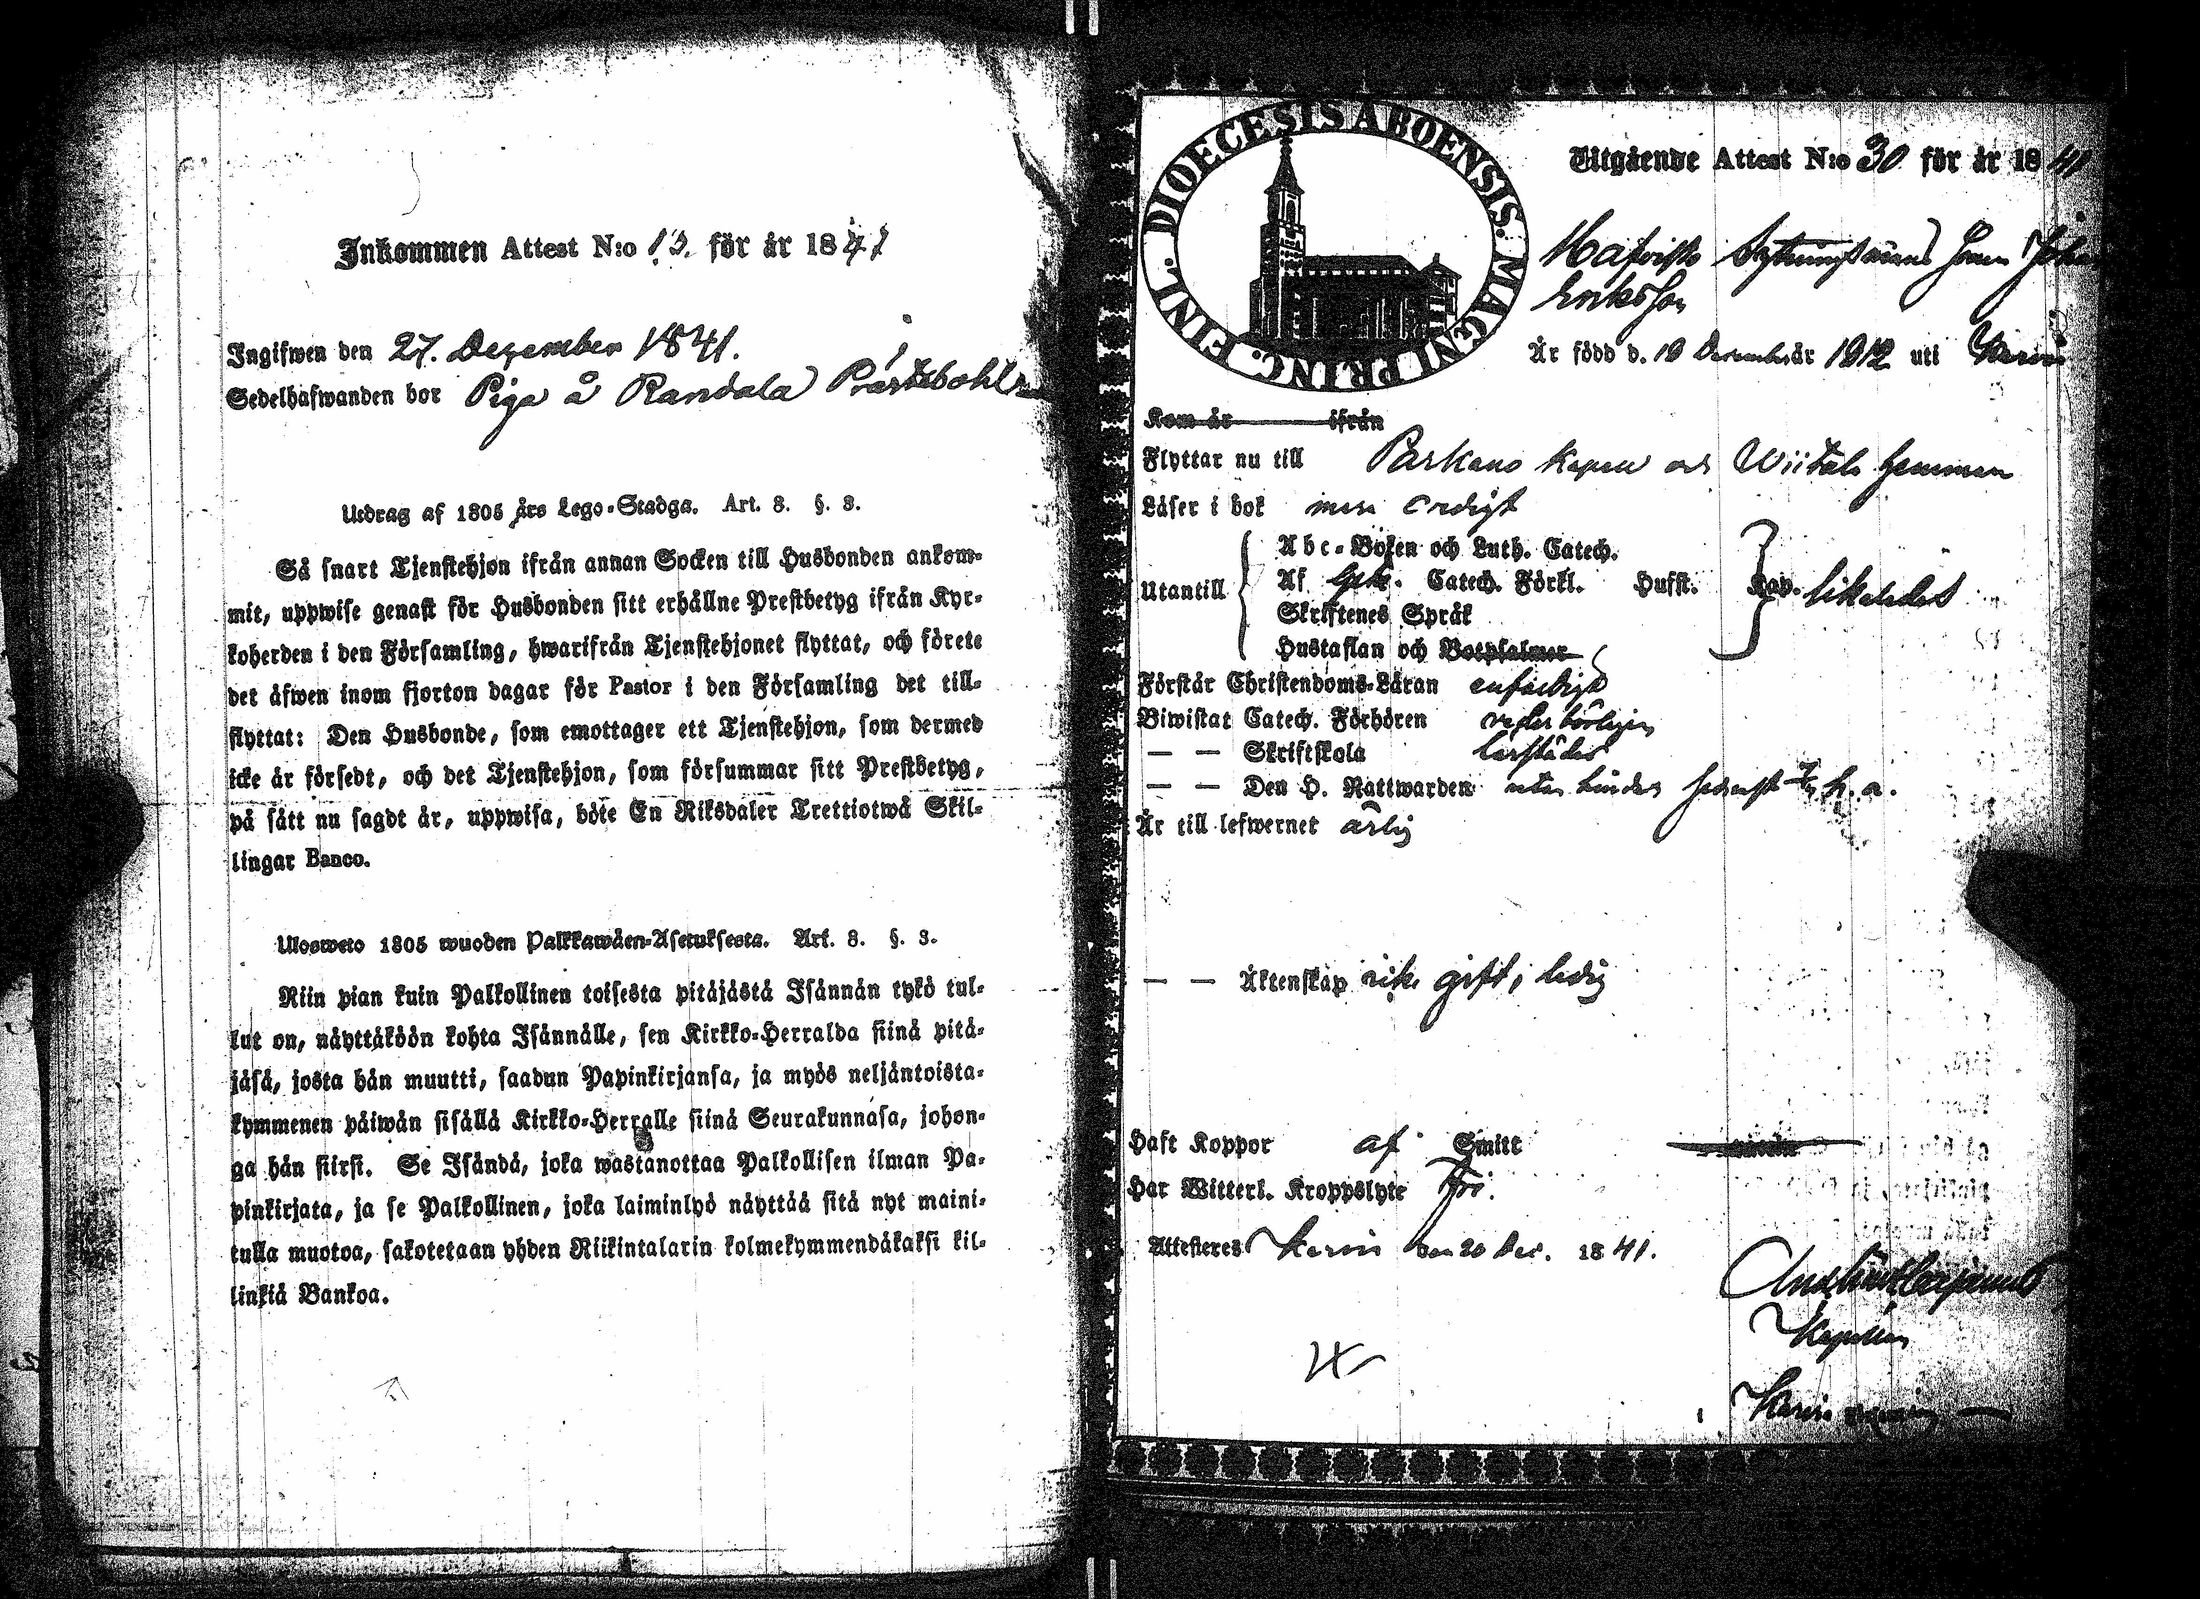 Inkommen Attest N:o 13. för år 1841
Ingifwen den 27. Dezember 1841.
Sedelhafwanden bor Piga å Randala Prästebohl
Utdrag af 1805 års Lego-Stadga. Art. 8. §. 3.
Så snart Tjenstehjon ifrån annan Socken till Husbonden ankom-
mit, uppwise genast för Husbonden sitt erhållne Prestbetyg ifrån Kyr-
koherden i den Församling, hwarifrån Tjenstehjonet flyttat, och förete
det äfwen inom fjorton dagar för Pastor i den Församling det till-
flyttat: Den Husbonde, som emottager ett Tjenstehjon, som dermed
icke är försedt, och det Tjenstehjon, som försummar sitt Prestbetyg,
på sätt nu sagdt är, uppwisa, böte En Riksdaler Trettiotwå Skil-
lingar Banco.
Ulosweto 1805 wuoden Palkkawäen-Asetuksesta. Art. 8. §. 3.
Niin pian kuin Palkollinen toisesta pitäjästä Isännän tykö tul-
lut on, näyttäköön kohta Isännälle, sen Kirkko-Herralda siinä pitä-
jäsä, josta hän muutti, saadun Papinkirjansa, ja myös neljäntoista-
kymmenen päiwän sisällä Kirkko-Herralle siinä Seurakunnasa, johon-
ga hän siirsi. Se Isändä, joka wastanottaa Palkollisen ilman Pa-
pinkirjata, ja se Palkollinen, joka laiminlyö näyttää sitä nyt maini-
tulla muotoa, sakotetaan yhden Riikintalarin kolmekymmendäkaksi kil-
linkiä Bankoa.
FINL. DIOECESIS ABOENSIS. MAGNI PRINC.
Utgående Attest N:o 30 för år 1841
Sonen Johan
Eriksson
Är född d. 19 December år 1812 uti
Kom år ifrån
Flyttar nu till Parkano Kapell och Wiitala hemman
Läser i bok
Utantill
Abc-Boken och Luth. Catech.
Af Catech. Förkl. Husst. Kap. likaledes
Skriftenes Språk
Hustaflan och Botpsalmer
Förstår Christendoms-Läran enfaldigt
Biwistat Catech. Förhören wederbörligen
— — Skriftskola
— — Den H. Nattwarden utan hinder h. a.
Är till lefwernet ärlig
— — Äktenskap icke gift, ledig
Haft Koppor af Smitt
Har Witterl. Kroppslyte Fri.
Attesteres den 20 Dec. 1841.
Kapellan